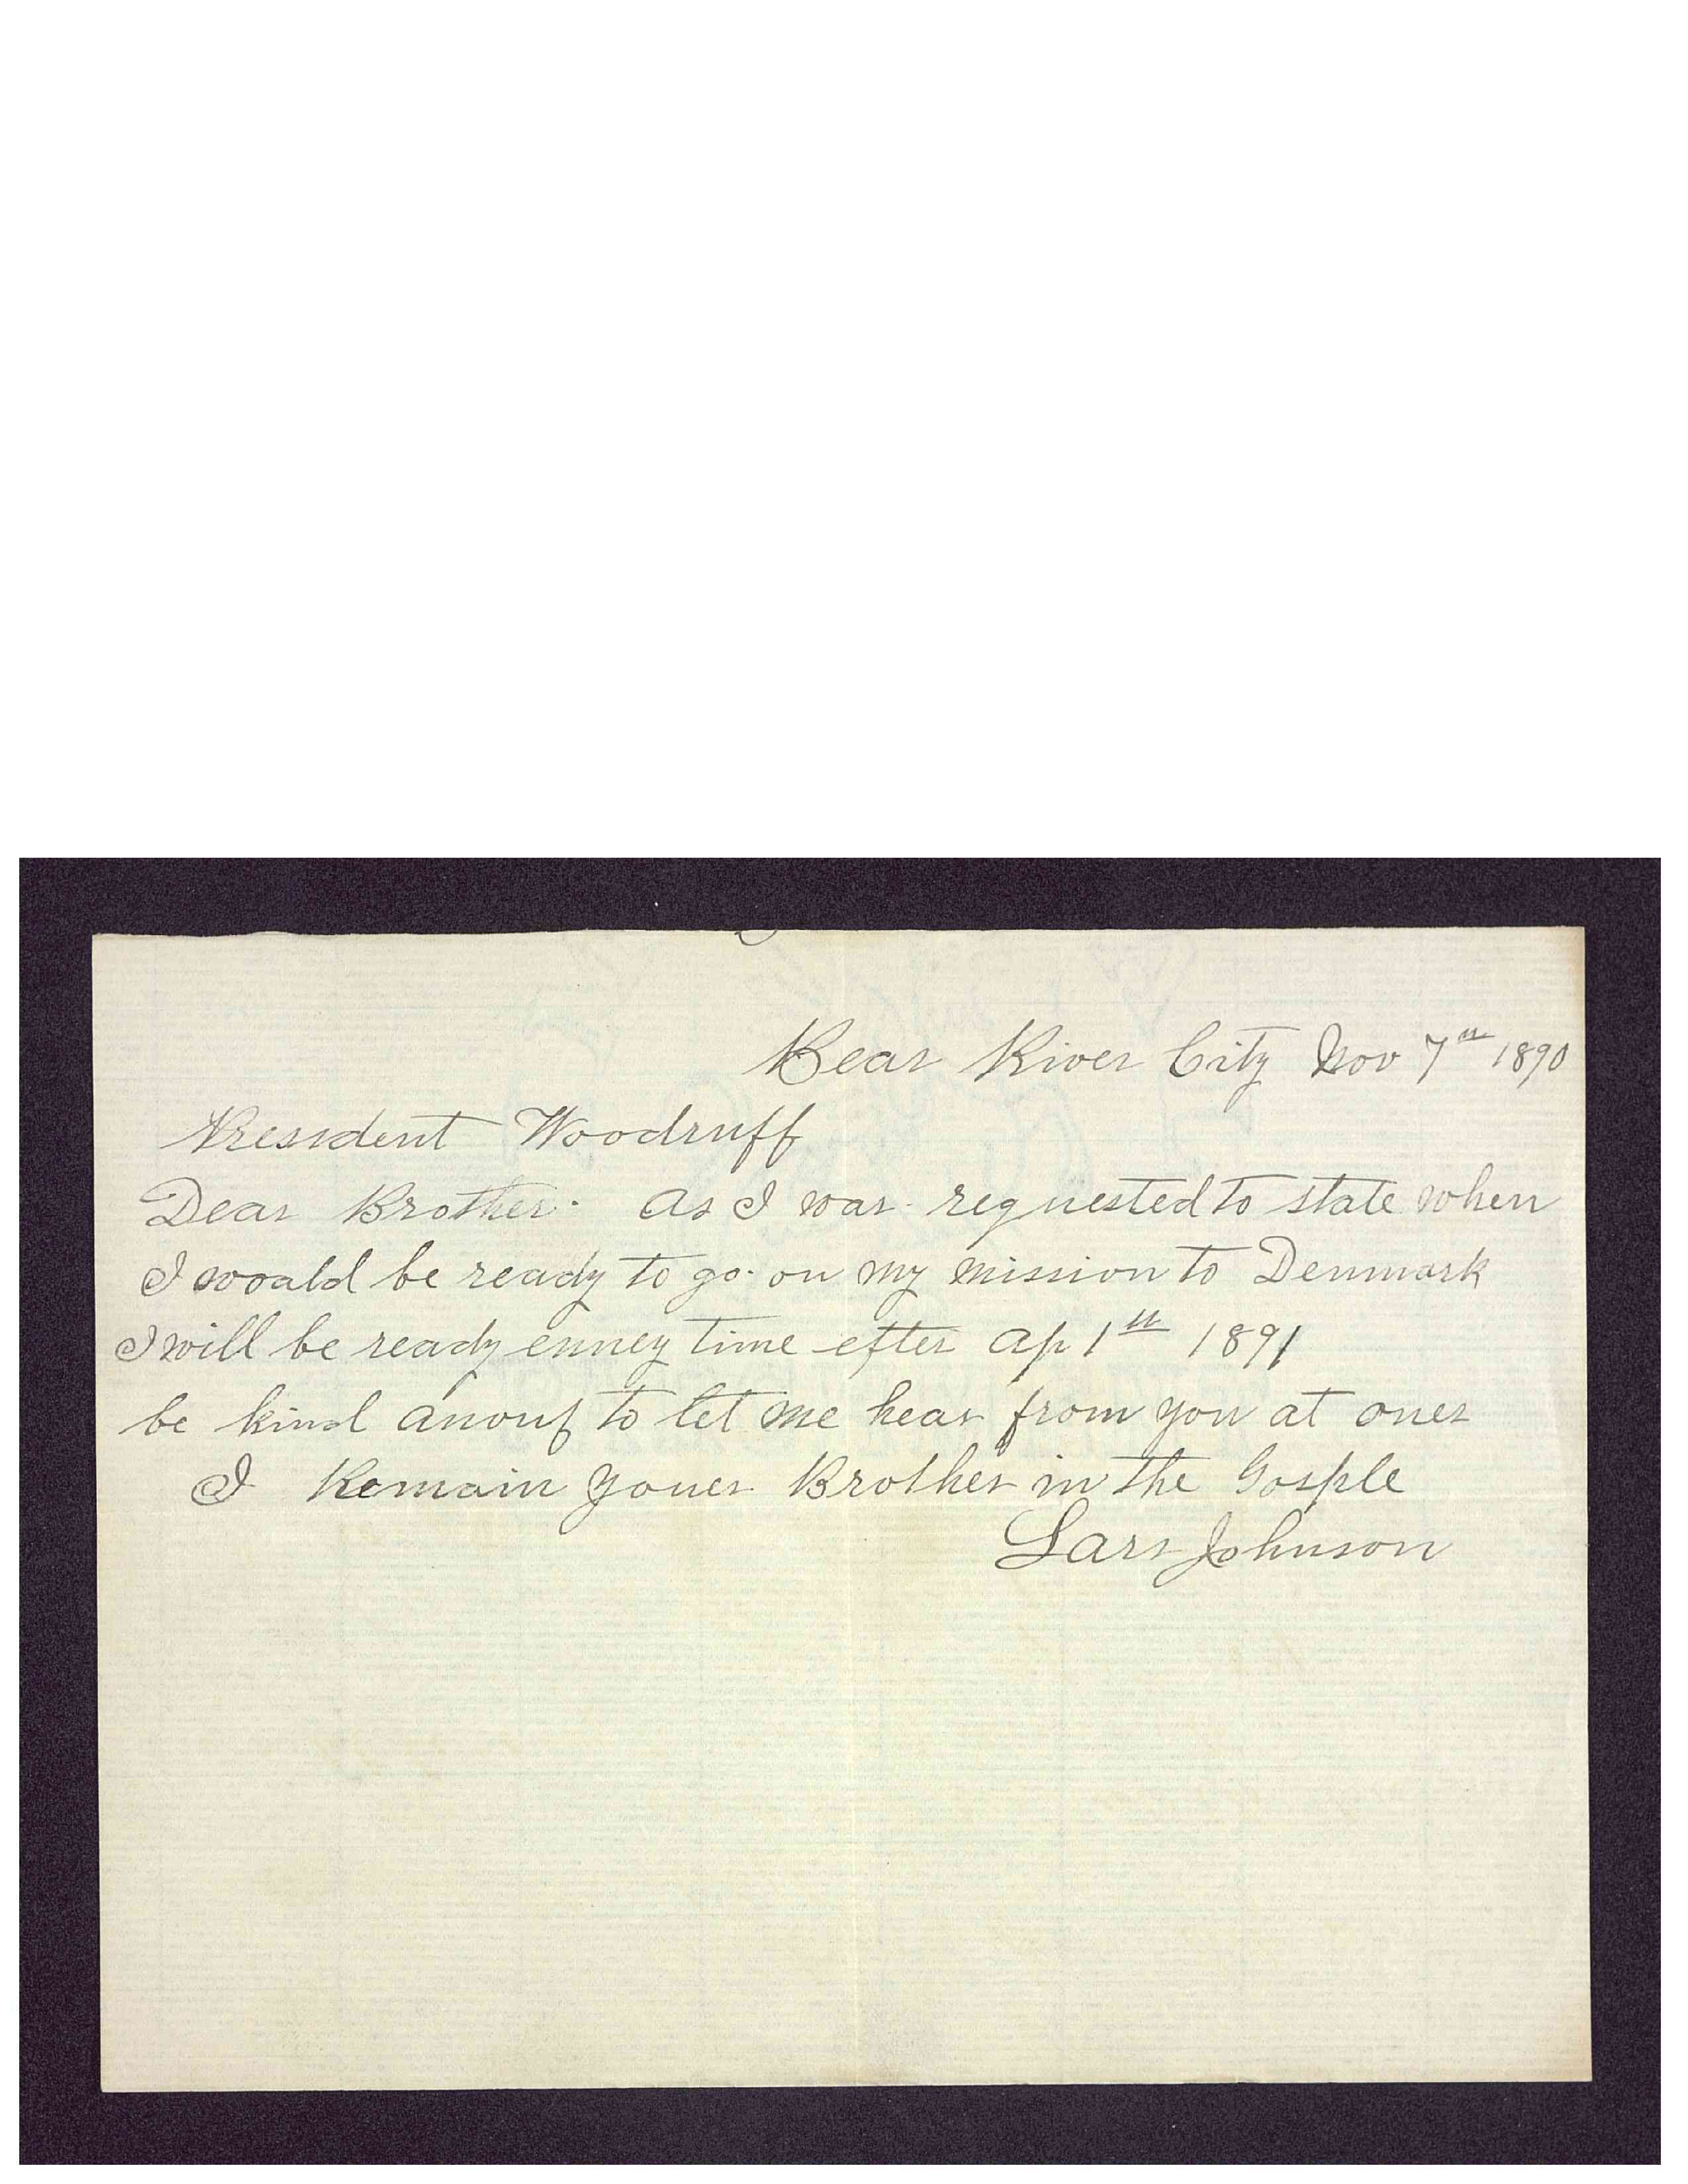 Bear River City Nov 7th 1890
President Woodruff
Dear Brother. as I was requested to state when
I woould be ready to go on my mission to Denmark
I will be ready enney time efter ap 1st 1891
be kind anouf to let me hear from you at ones
I Remain youer Brother in the Gosple
Lars Johnson